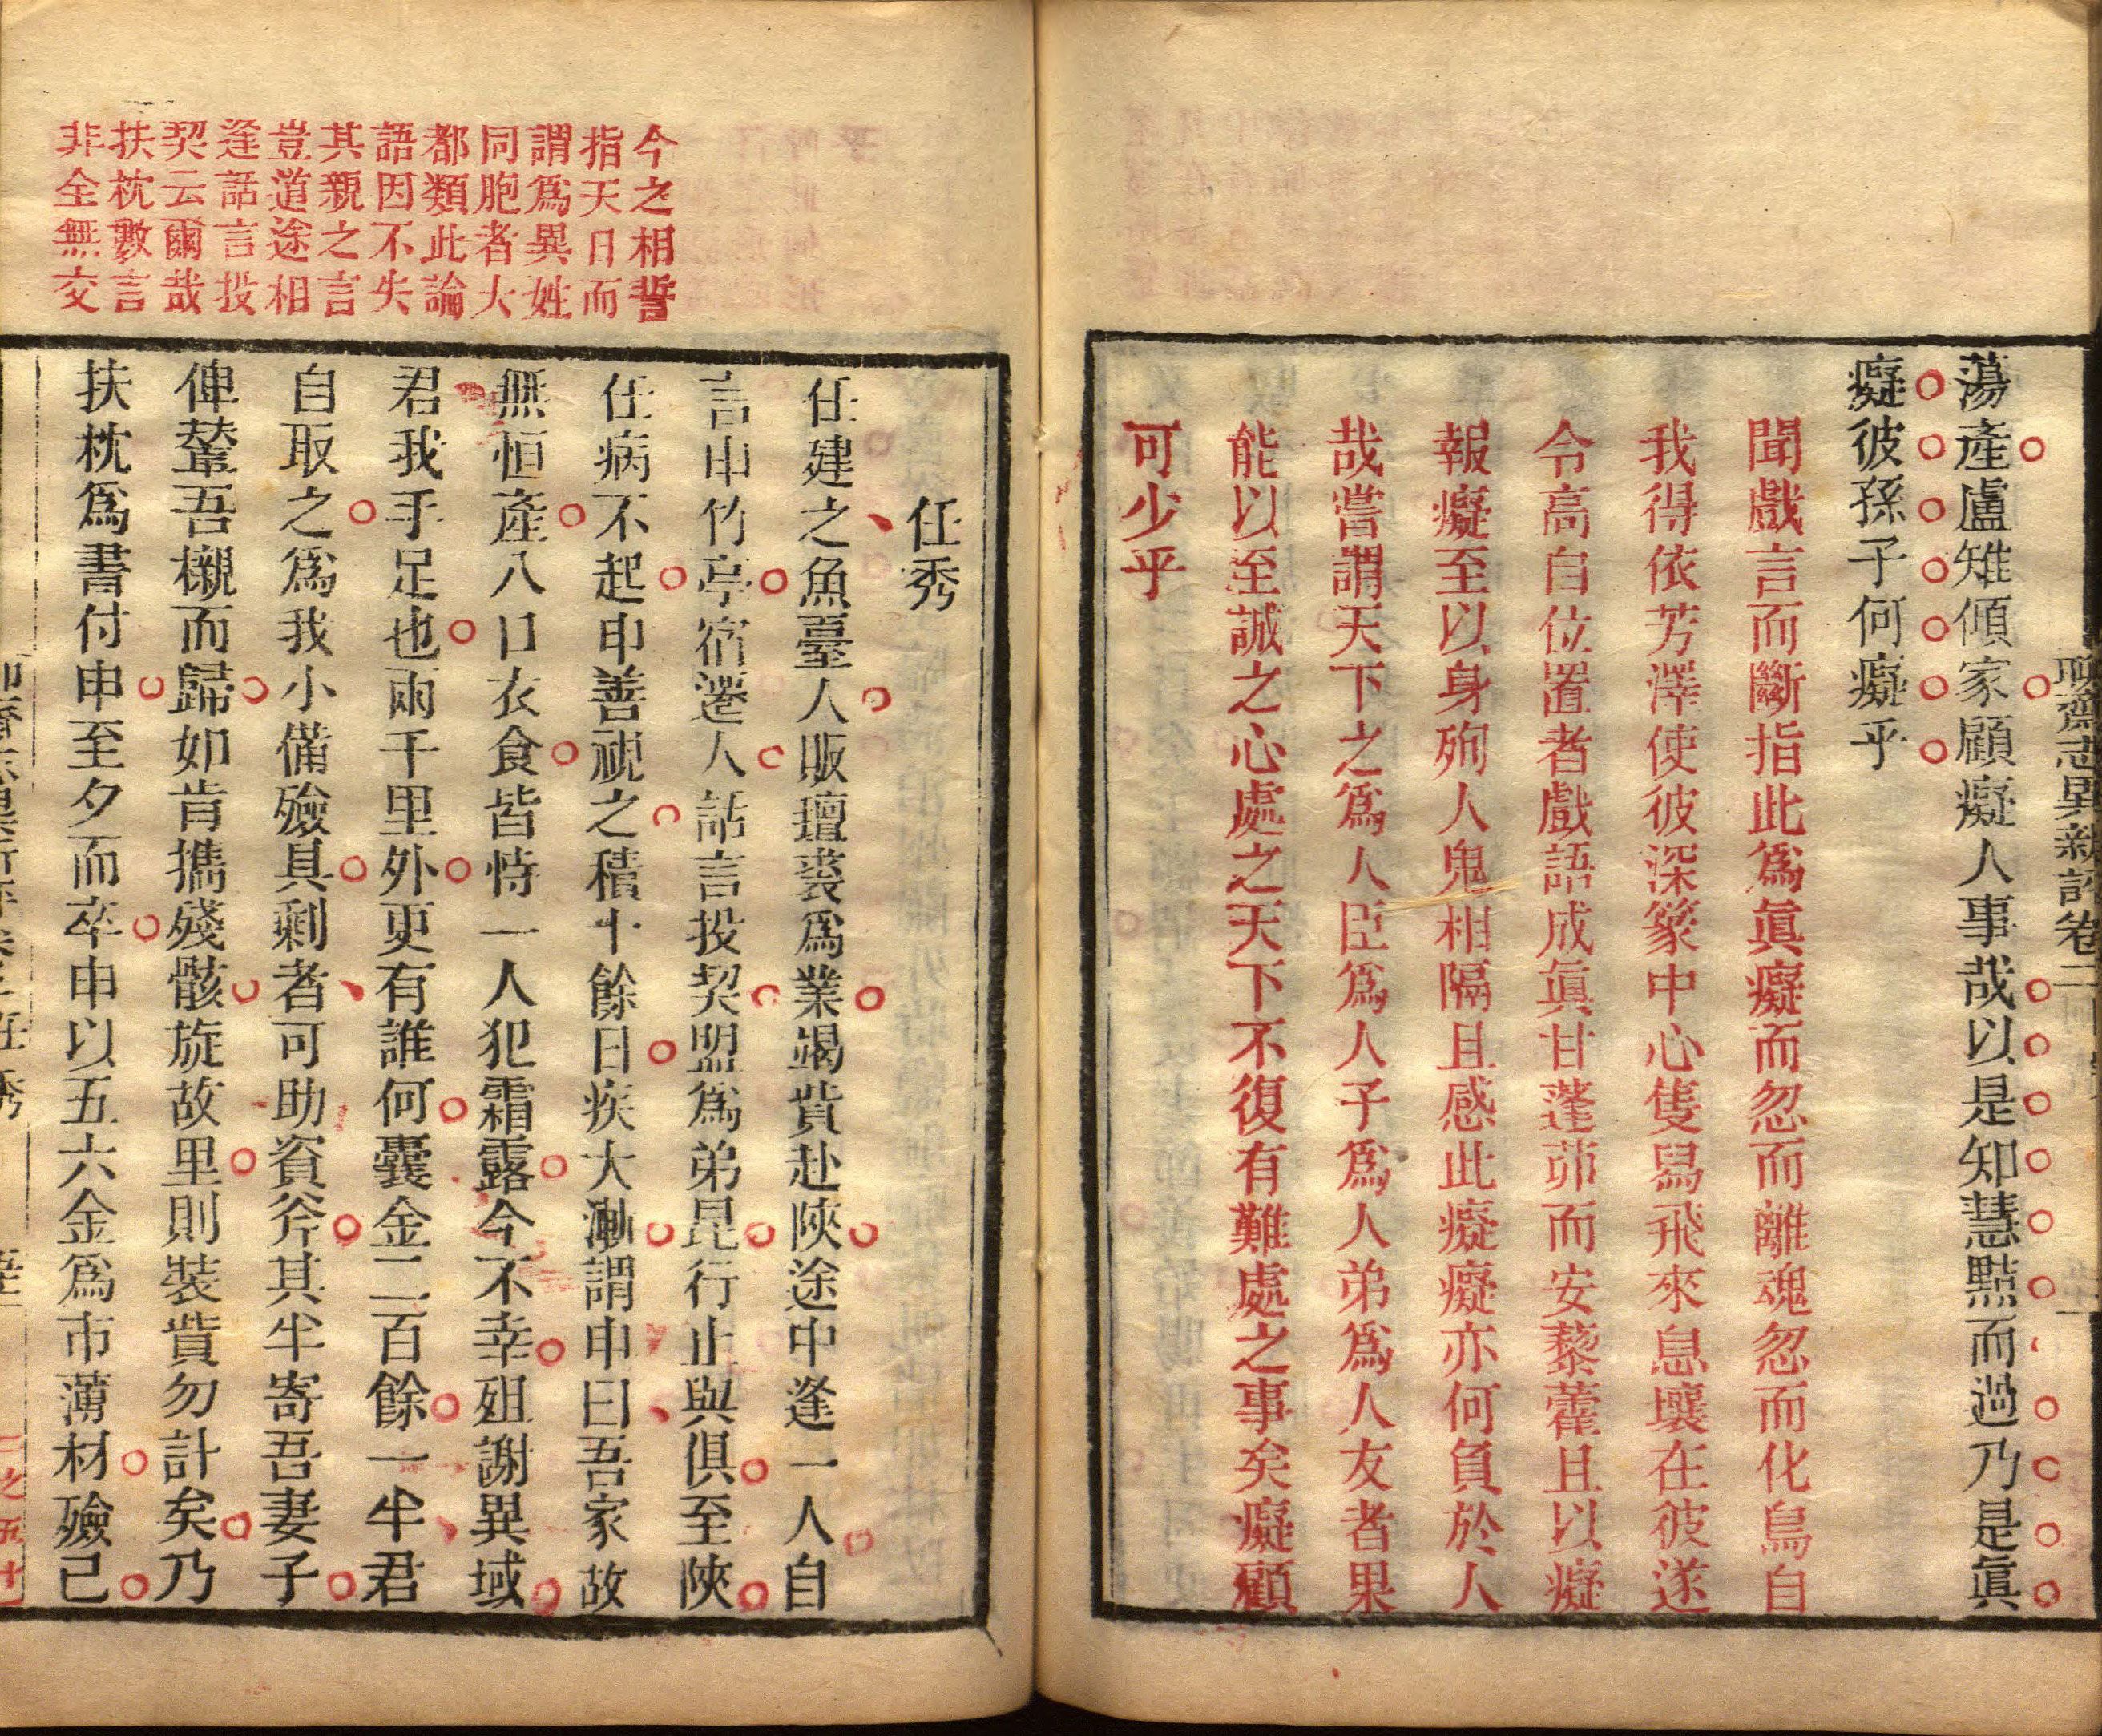 聊齋志異新評卷二
蕩產盧雉傾家顧癡人事哉以是知慧黠而過乃是眞
癡彼孫子何癡乎
聞戲言而斷指此爲眞癡而忽而離魂忽而化鳥自
我得依芳澤使彼深篆中心隻舄飛來息壤在彼遂
令高自位置者戲語成眞甘蓬茆而安藜藿且以癡
報癡至以身殉人鬼相隔且感此癡癡亦何負於人
哉嘗謂天下之爲人臣爲人子爲人弟爲人友者果
能以至誠之心處之天下不復有難處之事矣癡顧
可少乎
今之相誓
指天日而
謂爲異姓
同胞者大
都類此論
語因不失
其親之言
豈道途相
逢話言投
契云爾哉
扶枕數言
非全無交
任秀
任建之魚臺人販氊裘爲業竭貲赴陝途中逢一人自
言申竹亭宿遷人話言投契盟爲弟昆行止與俱至陝
任病不起申善視之積十餘日疾大漸謂申曰吾家故
無恒產八口衣食皆恃一人犯霜露今不幸殂謝異域
君我手足也兩千里外更有誰何囊金二百餘一半君
自取之爲我小備殮具剩者可助資斧其半寄吾妻子
俾輦吾櫬而歸如肯攜殘骸旋故里則裝貲勿計矣乃
扶枕爲書付申至夕而卒申以五六金爲市薄材殮已